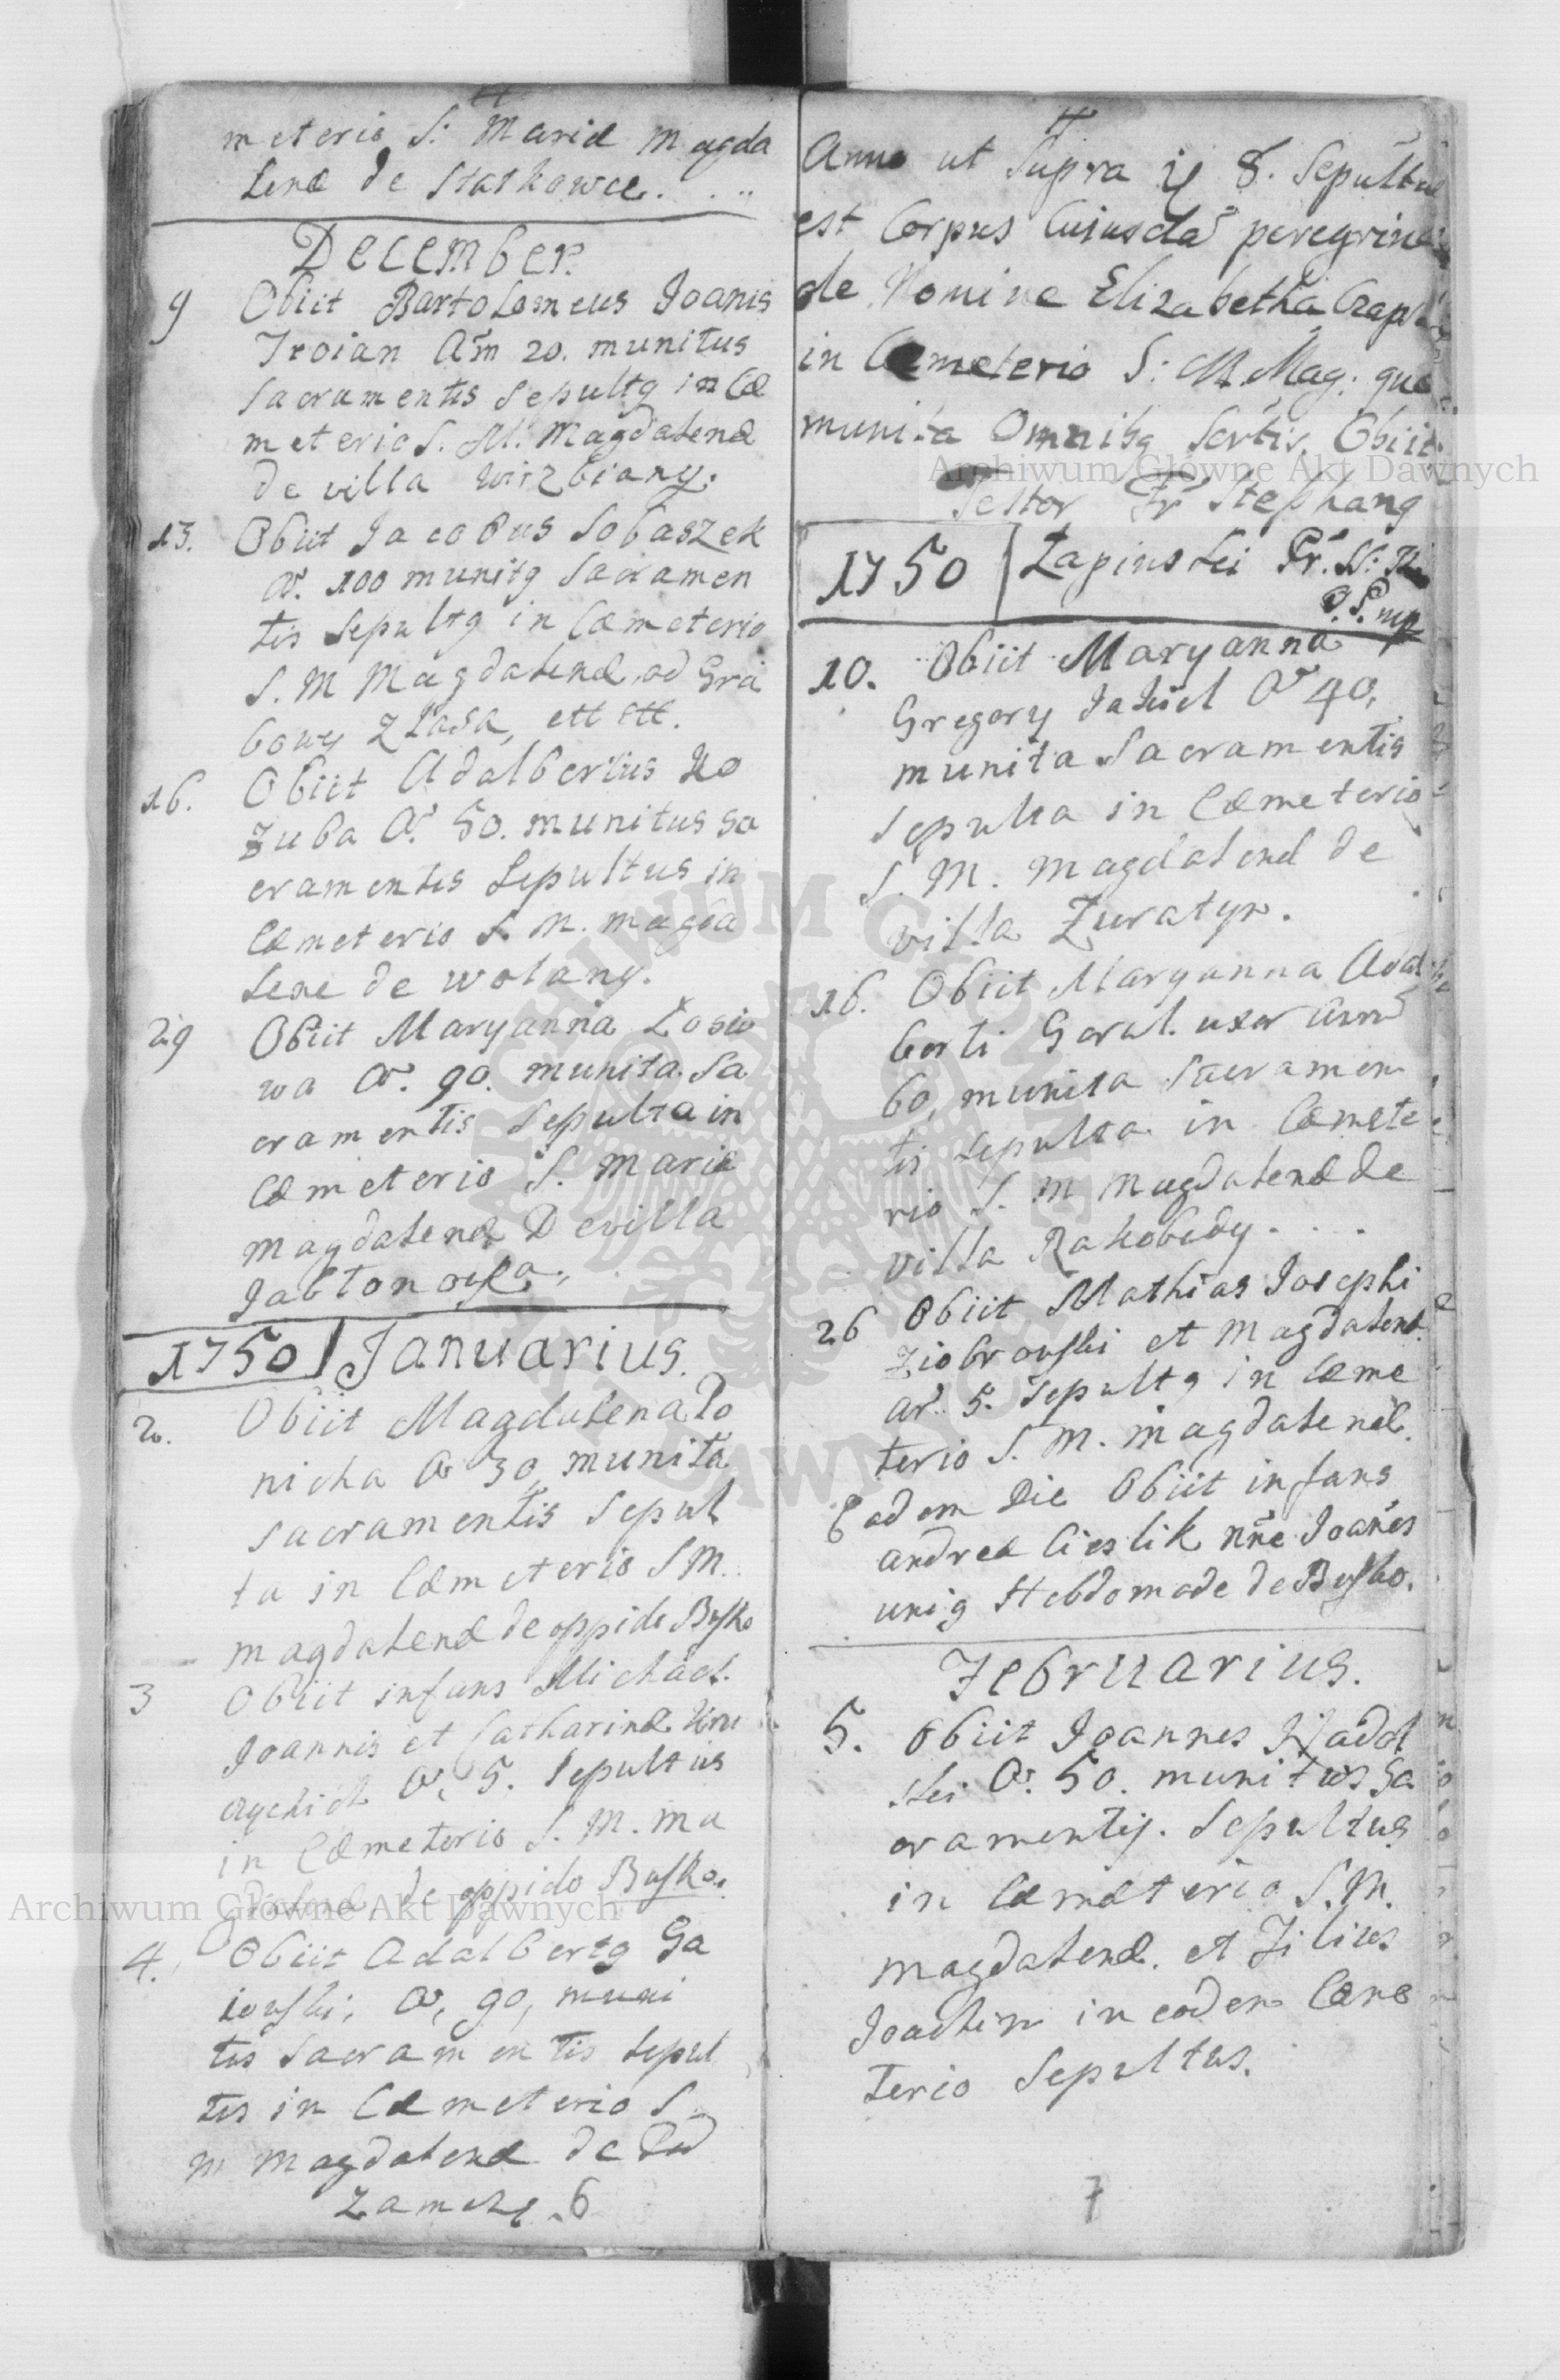 meterio S: Mariæ Magda
lenæ de Statkowce. . ..
December.
9 Obiit Bartolomeus Joanis
Troian Am 20. munitus
sacramentis sepultg in Cæ
meterio S. M. Magdalenæ
de villa Wirzbiany.
13. Obiit Jacobus Sobaszek
A. 100 munitg Sacramen
tis sepultg in Cæmeterio
S. M Magdalenæ, ad Gra
bowy z Lasa, ett ett.
16. Obiit Adalbertus Ko
zuba A. 50. munitus sa
cramentis Sepultus in
Cæmeterio S. M. Magda
lene de Wolany.
29 Obiit Maryanna Łosio
wa A. 90. munita Sa
cramentis Sepulta in
Cæmeterio S. Mariæ
Magdalenæ De villa
Jabłonowka.
1750 Januarius.
2. Obiit Magdalena Po
nicha A 30 munita
sacramentis Sepul
ta in Cæmeterio S M.
Magdalenæ de oppido Busko
3 Obiit infans Michael
Joannis et Catharinæ
A. 5. Sepultus
in Cæmeterio S. M. Ma
de oppido Busko.
4. Obiit Adalbertg Ga
iowski, A. 90, muni
tus Sacramentis Sepul
tus in Cæmeterio S
M Magdalenæ de Pod
zamcze. 6
Anno ut Supra 8. Sepultu
est Corpus Cuiusdã peregrinæ
de Nomine Elizabetha
in Cæmeterio S: M. Mag. quæ
munita Omnibg Sctis. Obiit
Testor Fr Stephang
1750 Łapinski Pr. S:
10. Obiit Maryanna
Gregory A 40,
munita Sacramentis
Sepulta in Cæmeterio
S. M. Magdalenæ de
villa Zuratyn.
16. Obiit Maryanna Adal
berti Goral. uxor Ann
60, munita Sacramen
tis sepulta in Cæmete
rio S. M Magdalenæ de
villa Rakobudy. . . .
26 Obiit Mathias Josephi
Ziobrowski et Magdalenæ
A. 5. Sepultg in Cæme
terio S. M. Magdalenæ.
Eadem Die Obiit infans
Andreæ Cieslik nne Joanes
unig Hebdomade de Busko.
Februarius.
5. Obiit Joannes
A. 50. munitus Sa
cramentis. Sepultus
in Cæmæterio S. M.
Magdalenæ. et Filius
Joachim in eodem Cæme
terio Sepultus.
7
Archiwum Główne Akt Dawnych
Archiwum Główne Akt Dawnych
ARCHIWUM GŁÓWNE AKT DAWNYCH